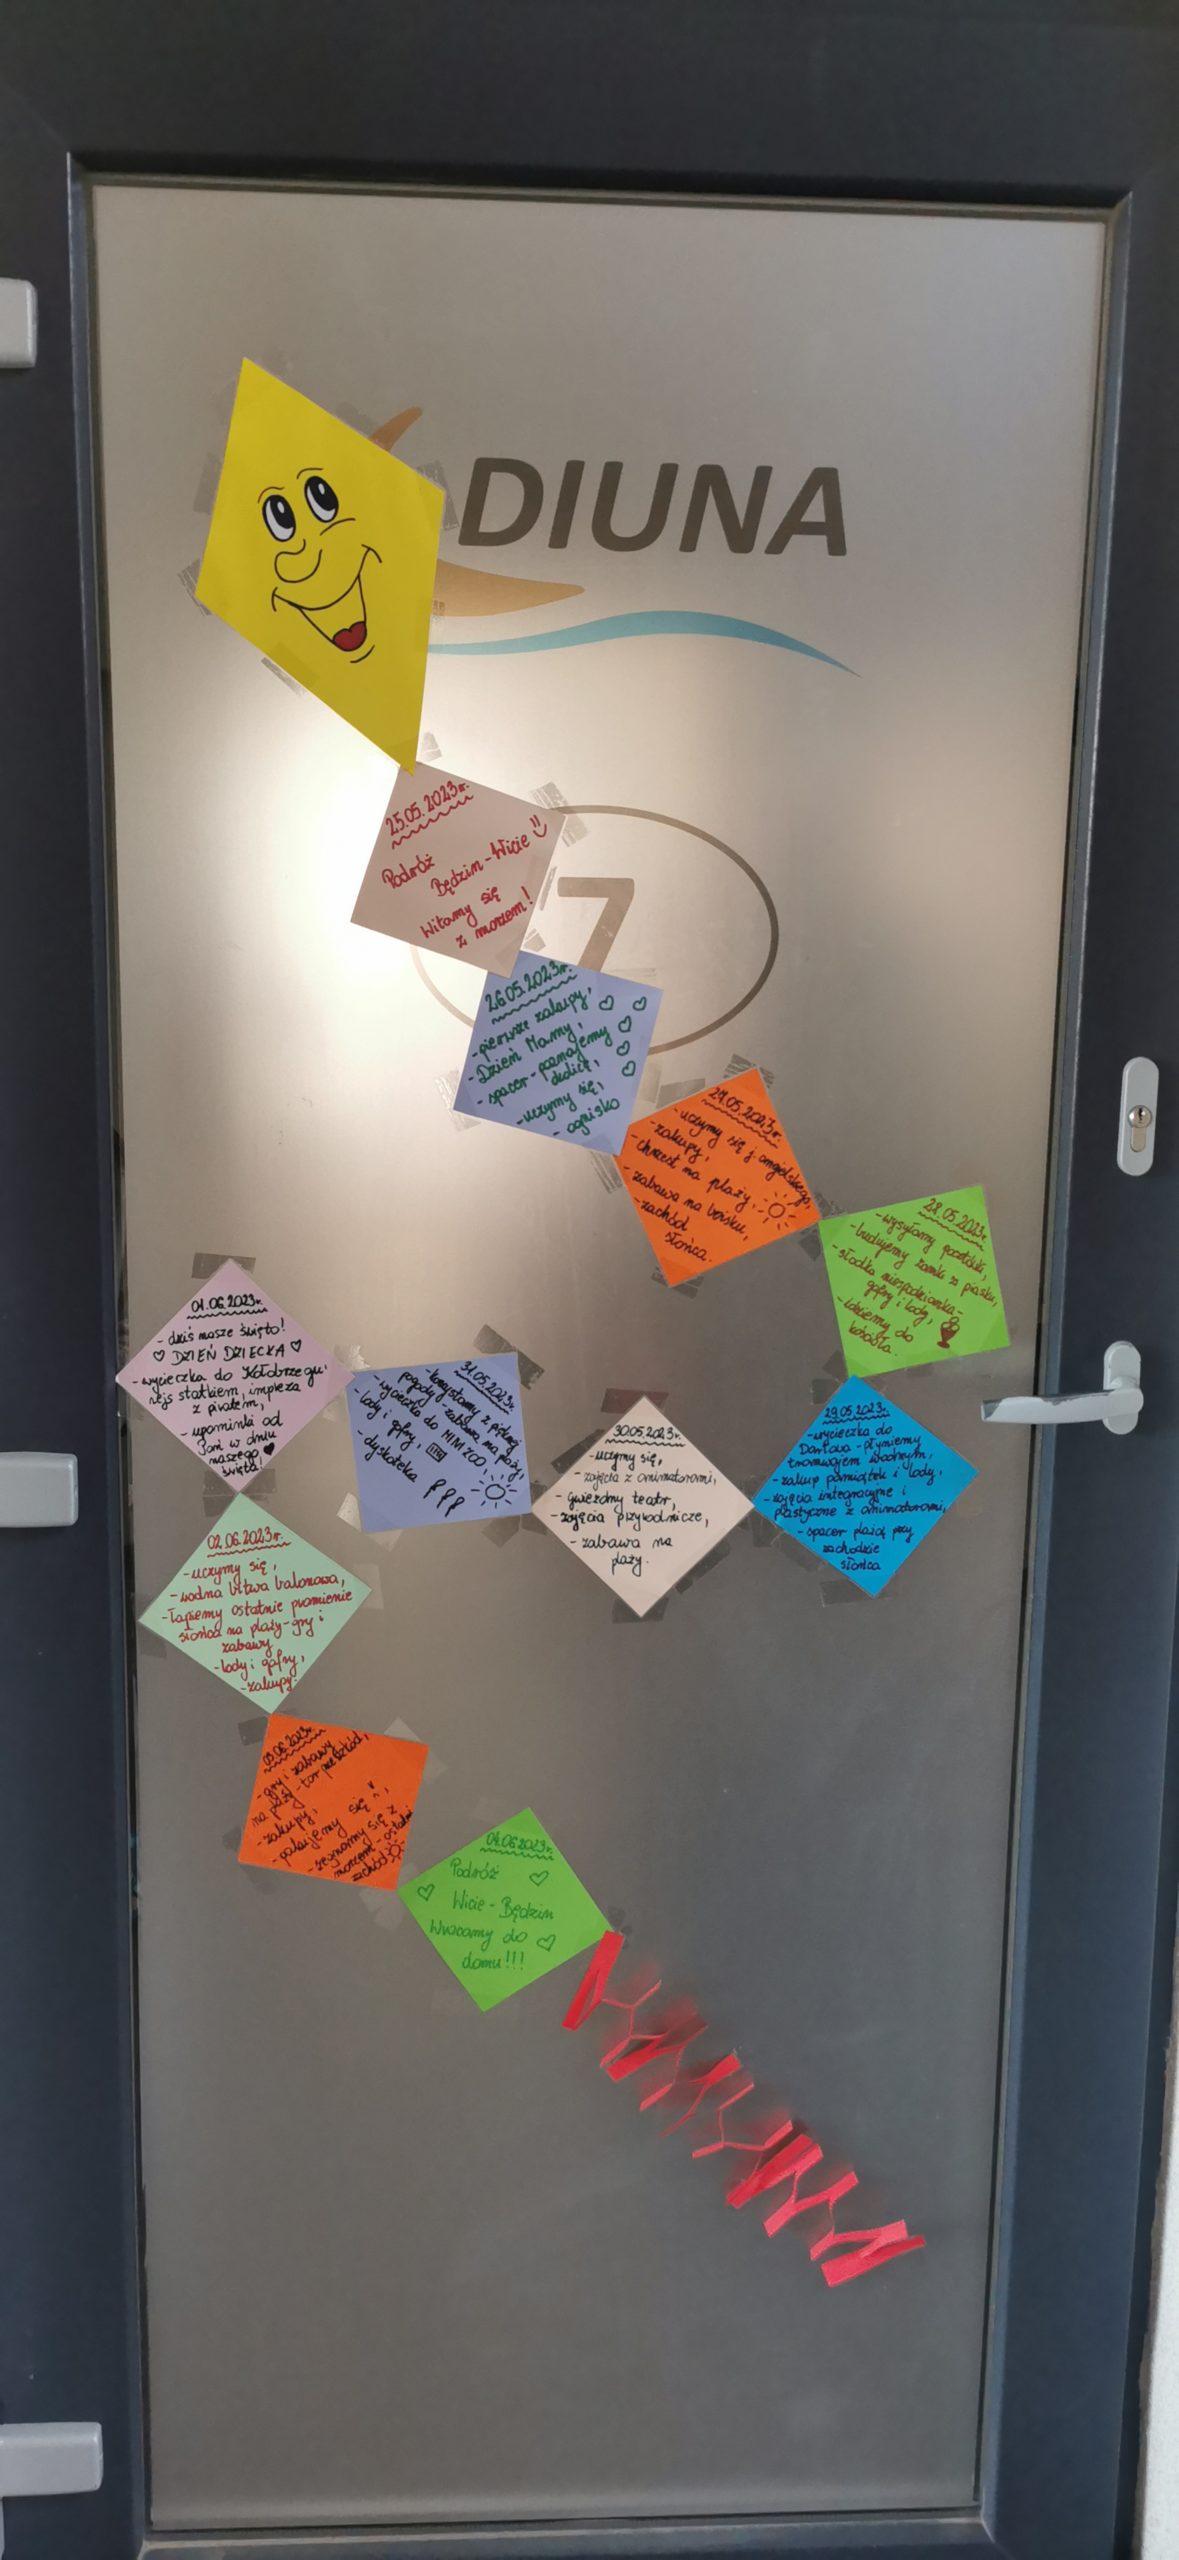 DIUNA
7
25.05.2023r.
Podróż
Będzin-Wicie
Witamy się
z morzem!
26.05.2023r.
-pierwsze zakupy,
-Dzień Mamy,
-spacer-poznajemy
okolicę,
-uczymy się,
-ognisko
27.05.2023r.
-uczymy się j. angielskiego,
-zakupy,
-chrzest na plaży,
-zabawa na boisku,
-zachód
słońca.
28.05.2023r.
-wysyłamy pocztówki,
-budujemy zamki z piasku,
-słodka niespodzianka-
gofry i lody,
-idziemy do
kościoła.
29.05.2023r.
-wycieczka do
Darłowa-płyniemy
tramwajem wodnym,
-zakup pamiątek i lody,
-zajęcia integracyjne i
plastyczne z animatorami,
-spacer plażą przy
zachodzie
słońca
30.05.2023r.
-uczymy się,
-zajęcia z animatorami,
-gwiezdny teatr,
-zajęcia przyrodnicze,
-zabawa na
plaży.
31.05.2023r.
-korzystamy z pięknej
pogody-zabawa na plaży,
-wycieczka do MINI ZOO,
-lody i gofry,
-dyskoteka
01.06.2023r.
-dziś nasze święto!
DZIEŃ DZIECKA
-wycieczka do Kołobrzegu:
rejs statkiem, impreza
z piratem,
-upominki od
Pani w dniu
naszego
święta!
02.06.2023r.
-uczymy się,
-wodna bitwa balonowa,
-łapiemy ostatnie promienie
słońca na plaży-gry i
zabawy
-lody i gofry,
-zakupy.
03.06.2023r.
-gry i zabawy
na plaży-tor przeszkód,
-zakupy,
-pakujemy się
-żegnamy się z
morzem-ostatni
zachód
04.06.2023r.
Podróż
Wicie-Będzin
Wracamy do
domu!!!